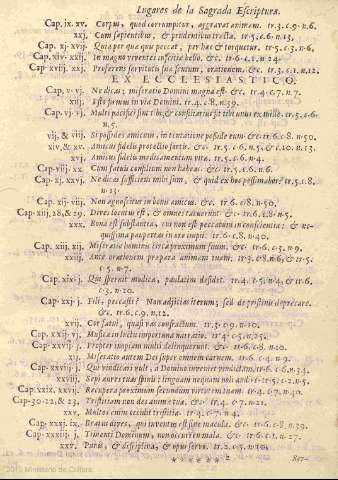 Lugares de la Sagrada Escriptura.
Cap. ix. xv. Corpus, quod corrumpitur, aggravat animam. tr. 3. c. 9. n. 6.
xxj. Cum sapientibus, & prudentibus tracta. tr. 5. c. 6. n. 13.
Cap. xj. xvij. Quia per quæ quis peccat, per hæc & torquetur. tr. 5. c. 3. n. 6.
Cap. xiv. xxij. In magno viventes inscitiæ bello. &c. tr. 6. c. 1. n. 24.
Cap. xviij. xxj. Proferens servitutis suæ scutum, orationem. &c. tr. 3. c. 1. n. 12.
EX ECCLESIASTICO.
Cap. v. vj. Ne dicas; miseratio Domini magna est. &c. tr. 4. c. 7. n. 7.
xij. Esto firmus in via Domini. tr. 4. c. 8. n. 39.
Cap. vj. vj. Multi pacifici sint tibi, & consiliarius sit tibi unus ex mille. tr. 5. c. 6.
n. 5.
vij, & viij. Si possides amicum, in tentatione posside eum. &c. tr. 6. c. 8. n. 50.
xiv, & xv. Amicus fidelis protectio fortis. &c. tr. 5. c. 6. n. 5, & c. 10. n. 13.
xvj. Amicus fidelis medicamentum vitæ. tr. 5. c. 6. n. 4.
Cap. viij. xx. Cum fatuis consilium non habeas. &c. tr. 5. c. 6. n. 6.
Cap. xj. xxvj. Ne dicas sufficiens mihi sum, & quid ex hoc pessimabor? tr. 5. c. 8.
n. 23.
viij. Non agnoscitur in bonis amicus. &c. tr. 6. c. 8. n. 50.
Cap. xiij, 28, & 29. Dives locutus est, & omnes tacuerunt. &c. tr. 6. c. 8. n. 5.
xxx. Bona est substantia, cui non est peccatum in conscientia; & nequissima
paupertas in ore impii. tr. 6. c. 8. n. 40.
Cap. xviij. xij. Miseratio hominis circa proximum suum. &c. tr. 6. c. 3. n. 9.
xxiij. Ante orationem præpara animam tuam. tr. 3. c. 8. n. 6, & tr. 5.
c. 5. n. 7.
Cap. xix. j. Qui spernit modica, paulatim decidet. tr. 4. c. 5. n. 4, & tr. 6.
Cap. xxj. j. Fili, peccasti? Non adjicias iterum; sed de pristinis deprecare.
&c. tr. 6. c. 9. n. 12.
xvij. Cor fatui, quasi vas confractum. tr. 3. c. 9. n. 10.
Cap. xxij. vj. Musica in luctu importuna narratio. tr. 4. c. 5. n. 25.
Cap. xxvij. j. Propter inopiam multi deliquerunt. &c. tr. 6. c. 8. n. 20.
xij. Miseratio autem Dei super omnem carnem. tr. 6. c. 4. n. 9.
Cap. xxviij. j. Qui vindicari vult, a Domino inveniet vindictam. tr. 6. c. 6. n. 34.
xxviij. Sepi aures tuas spinis: linguam nequam noli audire. tr. 5. c. 2. n. 5.
Cap. xxix. xxvij. Recupera proximum secundum virtutem tuam. tr. 4. c. 3. n. 20.
Cap. 30. 22, & 23. Tristitiam non des animæ tuæ. &c. tr. 4. c. 7. n. 21.
xxv. Multos enim occidit tristitia. tr. 4. c. 7. n. 4.
Cap. xxxj. ix. Beatus dives, qui inventus est sine macula. &c. tr. 6. c. 8. n. 39.
Cap. xxxiij. j. Timenti Dominum, non occurrent mala. &c. tr. 6. c. 1. n. 27.
xxv. Panis, & disciplina, & opus servo. tr. 6. c. 8. n. 10.
2
2010 Ministerio de Cultura